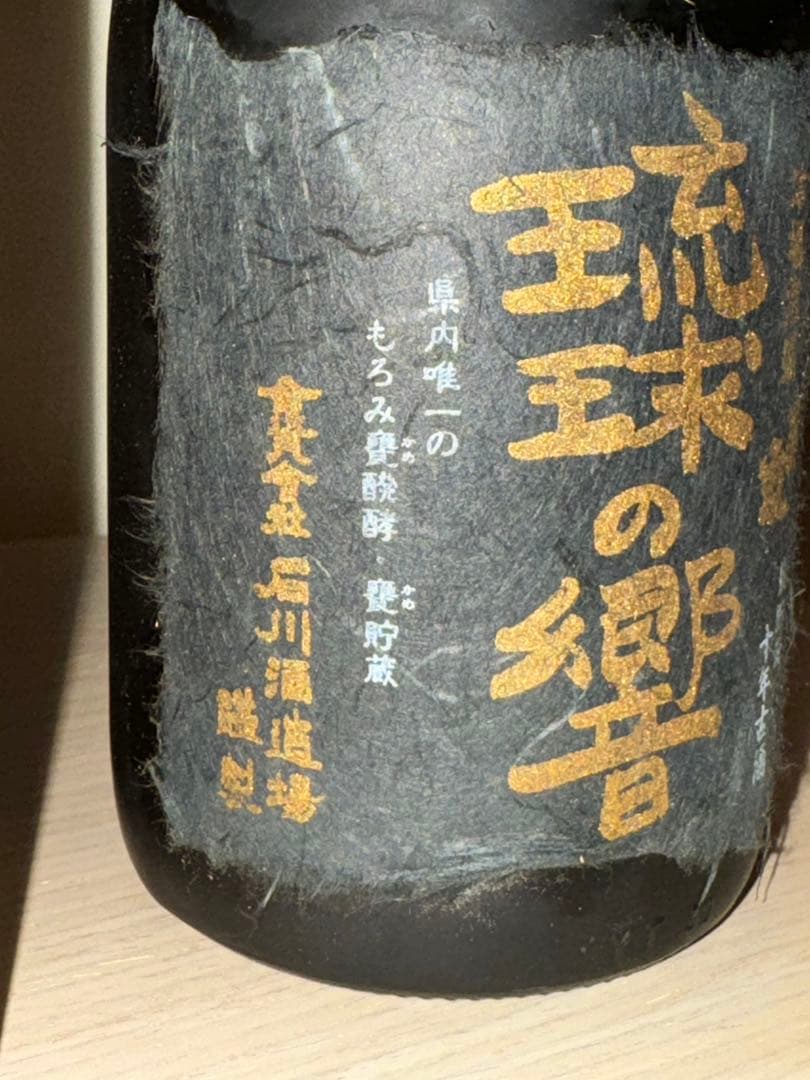 十年古酒
琉球の響
県内唯一の
もろみ甕醗酵・甕貯蔵
かめ
かめ
合資会社 石川酒造場
謹製